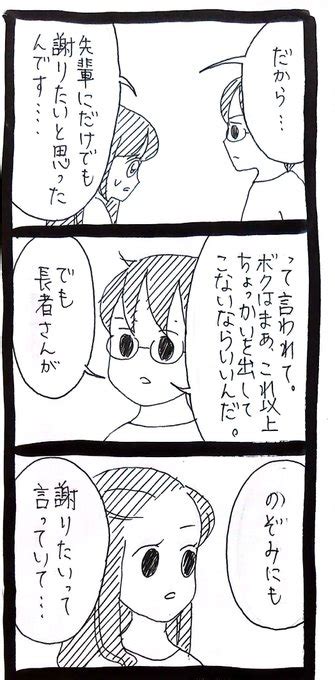 だから…
先輩にだけでも
謝りたいと思った
んです…
って言われて。
ボクはまあ、これ以上
ちょっかいを出して
こないならいいんだ。
でも
長者さんが
のぞみにも
謝りたいって
言っていて…